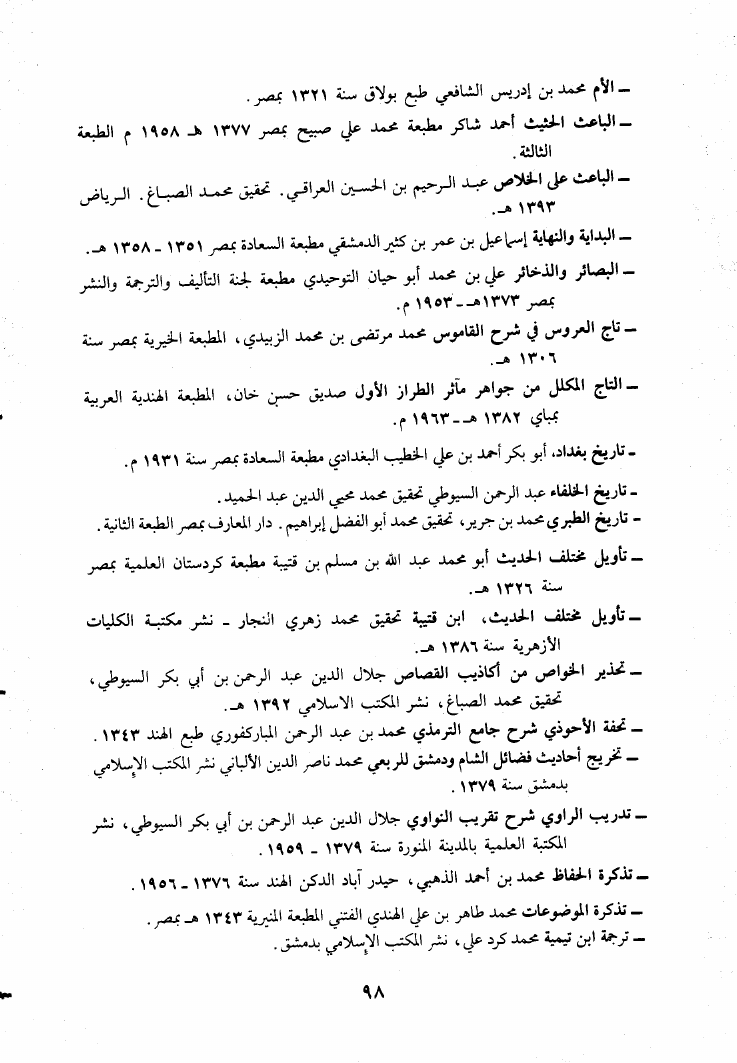 ـ الأم محمد بن إدريس الشافعي طبع بولاق سنة ١٣٢١ بمصر .
ـ الباعث الحثيث أحمد شاكر مطبعة محمد علي صبيح بمصر ١٣٧٧ هـ ١٩٥٨ م الطبعة
الثالثة .
ـ الباعث على الخلاص عبد الرحيم بن الحسين العراقي . تحقيق محمد الصباغ . الرياض
١٣٩٣ هـ .
ـ البداية والنهاية إسماعيل بن عمر بن كثير الدمشقي مطبعة السعادة بمصر ١٣٥١ ـ ١٣٥٨ هـ .
ـ البصائر والذخائر علي بن محمد أبو حيان التوحيدي مطبعة لجنة التأليف والترجمة والنشر
بمصر ١٣٧٣هـ ـ ١٩٥٣ م .
ـ تاج العروس في شرح القاموس محمد مرتضى بن محمد الزبيدي ، المطبعة الخيرية بمصر سنة
١٣٠٦ هـ .
ـ التاج المكلل من جواهر مآثر الطراز الأول صديق حسن خان ، المطبعة الهندية العربية
بمباي ١٣٨٢ هـ ـ ١٩٦٣ م .
ـ تاريخ بغداد، أبو بكر أحمد بن علي الخطيب البغدادي مطبعة السعادة بمصر سنة ١٩٣١ م .
ـ تاريخ الخلفاء عبد الرحمن السيوطي تحقيق محمد محيي الدين عبد الحميد .
ـ تاريخ الطبري محمد بن جرير ، تحقيق محمد أبو الفضل إبراهيم . دار المعارف بمصر الطبعة الثانية .
ـ تأويل مختلف الحديث أبو محمد عبد الله بن مسلم بن قتيبة مطبعة كردستان العلمية بمصر
سنة ١٣٢٦ هـ .
ـ تأويل مختلف الحديث ، ابن قتيبة تحقيق محمد زهري النجار ـ نشر مكتبة الكليات
الأزهرية سنة ١٣٨٦ هـ .
ـ تحذير الخواص من أكاذيب القصاص جلال الدين عبد الرحمن بن أبي بكر السيوطي ،
تحقيق محمد الصباغ ، نشر المكتب الاسلامي ١٣٩٢ هـ .
ـ تحفة الأحوذي شرح جامع الترمذي محمد بن عبد الرحمن المباركفوري طبع الهند ١٣٤٣ .
ـ تخريج أحاديث فضائل الشام ودمشق للربعي محمد ناصر الدين الألباني نشر المكتب الإسلامي
بدمشق سنة ١٣٧٩ .
ـ تدريب الراوي شرح تقريب النواوي جلال الدين عبد الرحمن بن أبي بكر السيوطي ، نشر
المكتبة العلمية بالمدينة المنورة سنة ١٣٧٩ ـ ١٩٥٩ .
ـ تذكرة الحفاظ محمد بن أحمد الذهبي ، حيدر آباد الدكن الهند سنة ١٣٧٦ ـ ١٩٥٦ .
ـ تذكرة الموضوعات محمد طاهر بن علي الهندي الفتني المطبعة المنيرية ١٣٤٣ هـ بمصر .
ـ ترجمة ابن تيمية محمد كرد علي ، نشر المكتب الإسلامي بدمشق .
٩٨